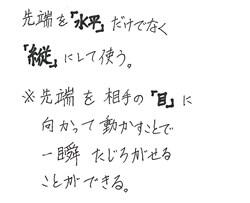 先端を「水平」だけでなく
「縦」にして使う。
※先端を相手の「目」に
向かって動かすことで
一瞬たじろがせる
ことができる。